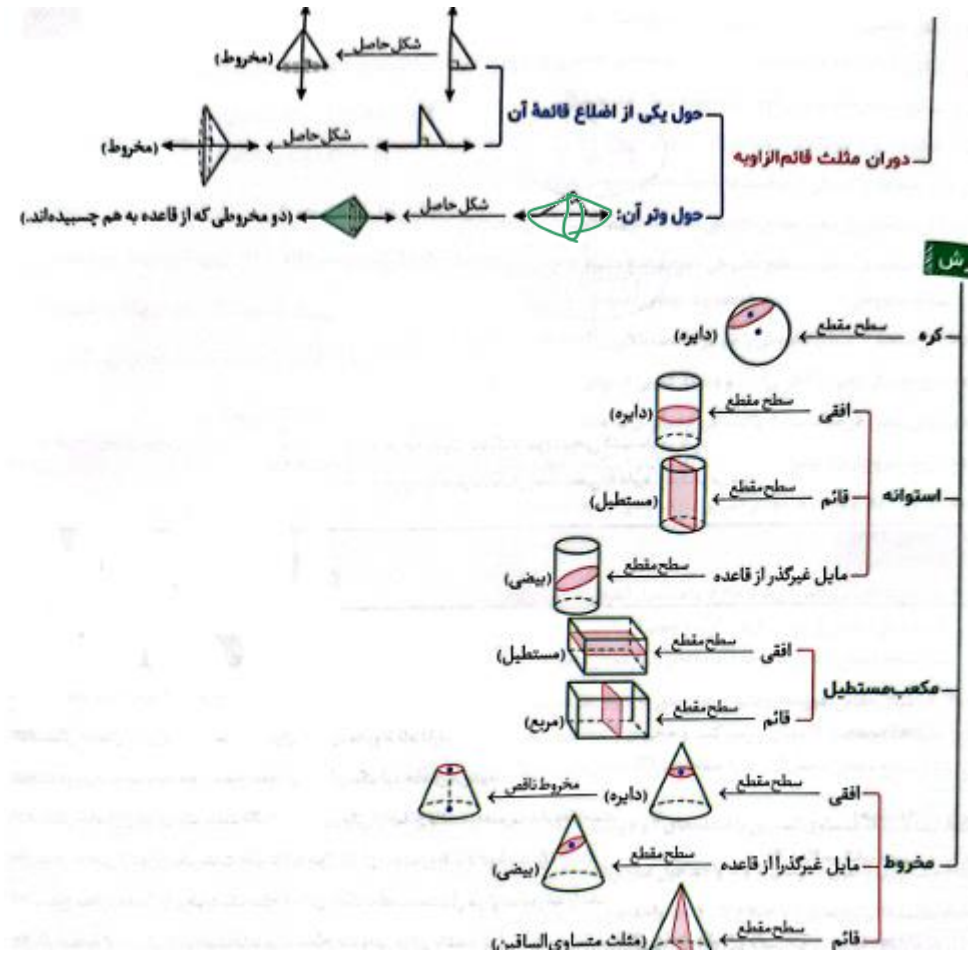 دوران مثلث قائم‌الزاویه
حول یکی از اضلاع قائمهٔ آن
شکل حاصل (مخروط)
شکل حاصل (مخروط)
حول وتر آن: شکل حاصل (دو مخروطی که از قاعده به هم چسبیده‌اند.)
رش
کره سطح مقطع (دایره)
استوانه
افقی سطح مقطع (دایره)
قائم سطح مقطع (مستطیل)
مایل غیرگذر از قاعده سطح مقطع (بیضی)
مکعب‌مستطیل
افقی سطح مقطع (مستطیل)
قائم سطح مقطع (مربع)
مخروط
افقی سطح مقطع (دایره) مخروط ناقص
مایل غیرگذر از قاعده سطح مقطع (بیضی)
قائم سطح مقطع (مثلث متساوی‌الساقین)